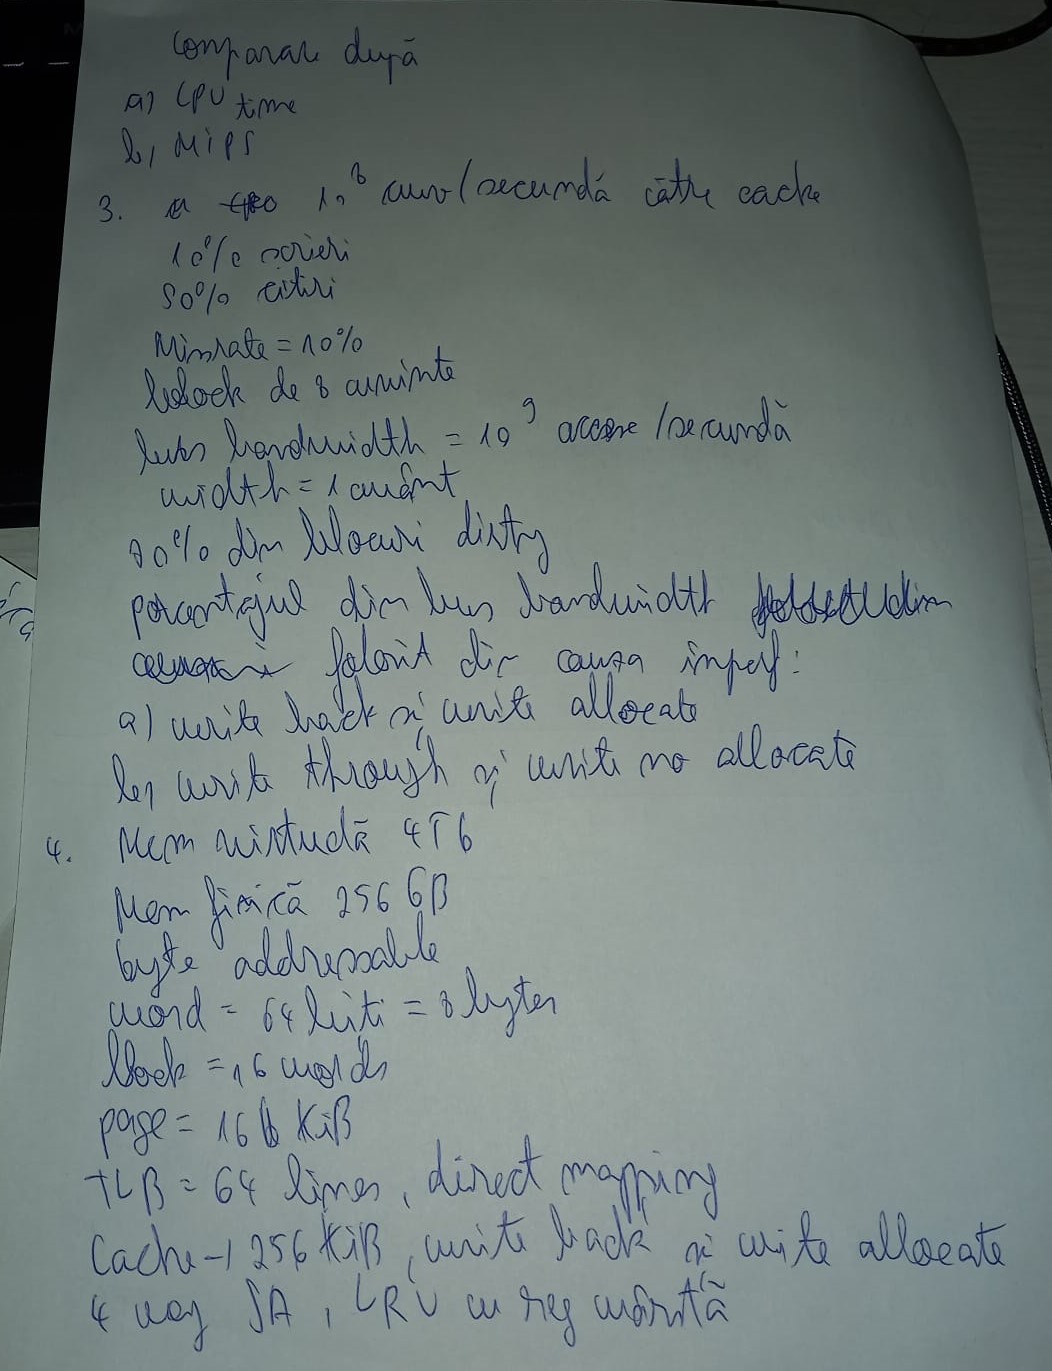 Comparare după
a) CPU time
b) MIPS
3. 10^8 cuv/secundă către cache
10% scrieri
90% citiri
Missrate = 10%
block de 8 cuvinte
bus bandwidth = 10^9 accese/secundă
width = 1 cuvânt
30% din blocuri dirty
porcentajul din bus bandwidth
folosit din cauza imperf:
a) write back și write allocate
b) write through și write no allocate
4. Mem virtuală 4TB
Mem fizică 256 GB
byte addressable
word = 64 biți = 8 bytes
block = 16 words
page = 16 KiB
TLB = 64 lines, direct mapping
Cache - 256 KiB, write back și write allocate
4 way SA, LRU cu reg